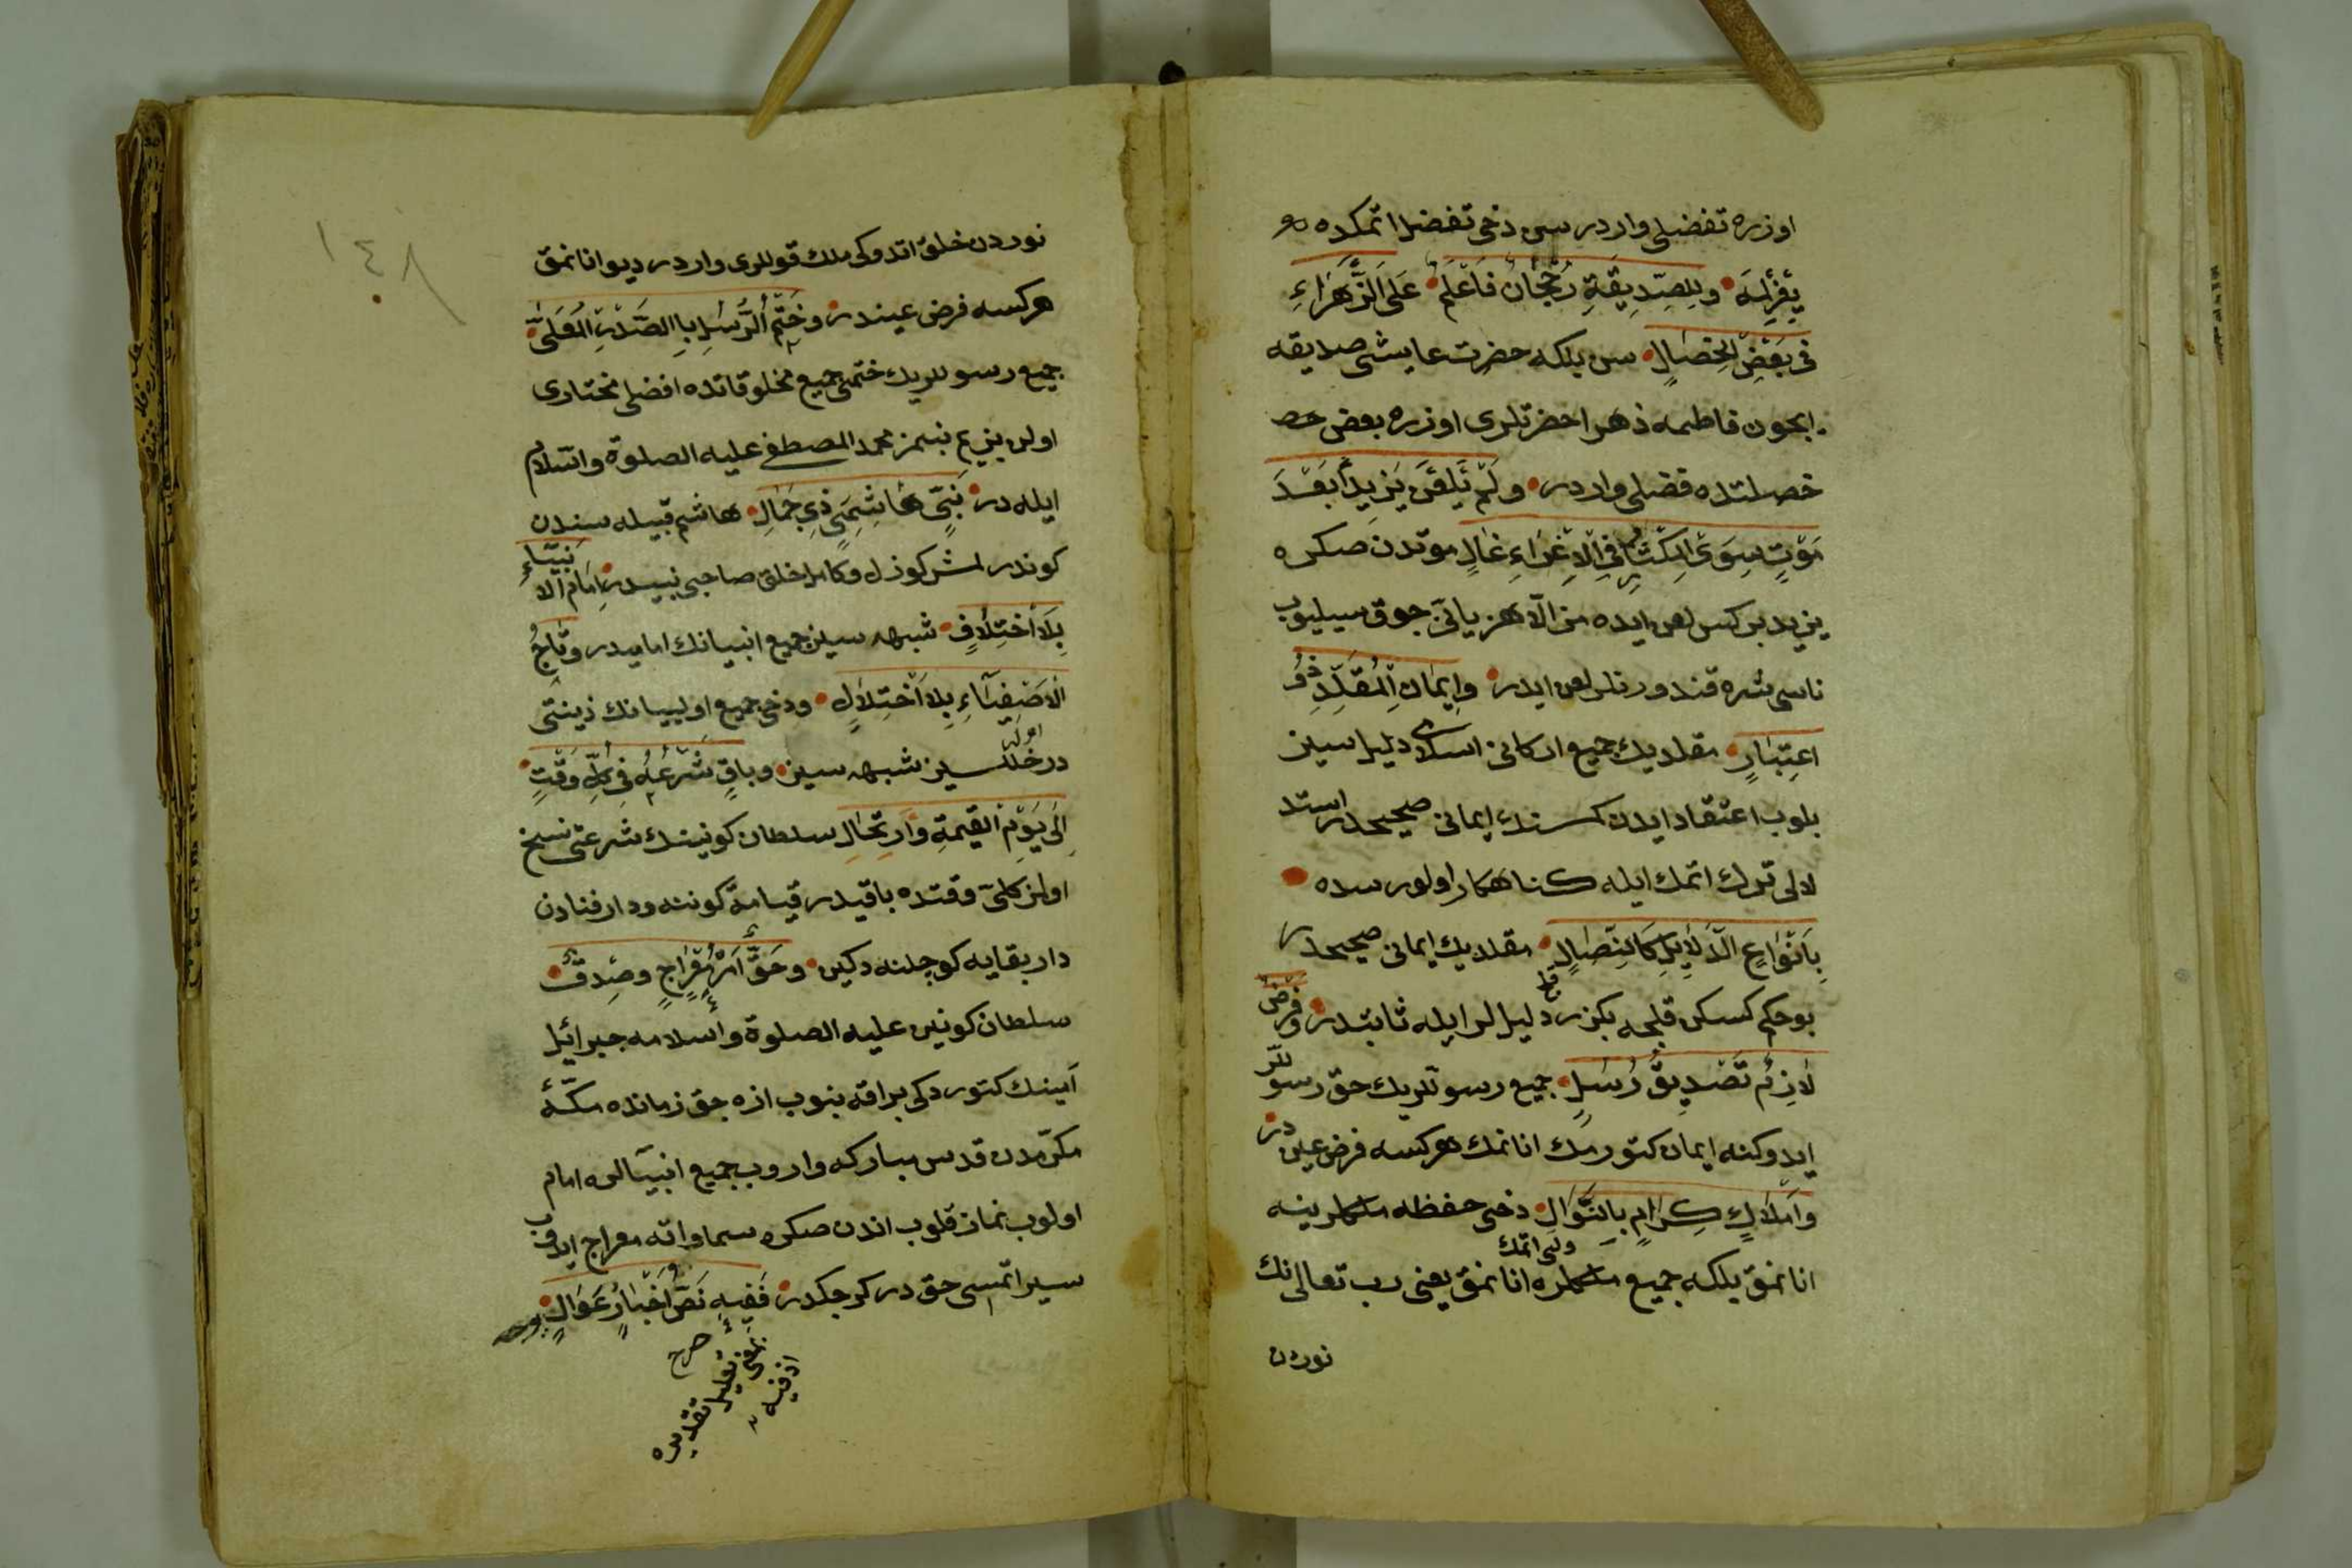 اوزره تفضلى واردر سى دخى تفضل اتمكده
وَلِلصِّدِيقَةِ رُجْحَانٌ فَاعْلَمْ عَلَى الزَّهْرَاءِ
فِى بَعْضِ الْخِصَالِ سن بلكه حضرت عايشئ صديقه
ايچون فاطمه ذهرا حضرتلرى اوزره بعض خص
خصلتده فضلى واردر وَلَمْ يَلْعَنْ يَزِيدًا بَعْدَ
مَوْتٍ سِوَى الْمِكْثَارِ فِى الْاِغْرَاءِ غَالٍ موتدن صكره
يزيد بر كس لعن ايده من الا هزيانى چوق سيليوب
ناسى شره قندورنلر لعن ايدر وَاِيمَانُ الْمُقَلِّدِ ذُو
اعْتِبَارٍ مقلديك جميع اركانى اسلامى دليل سيز
بلوب اعتقاد ايدن كسنك ايمانى صحيحدر استد
لالى ترك اتمك ايله كناهكار اولورسده
بِاَنْوَاعِ الدَّلَايِلِ كَالنِّصَالِ مقلديك ايمانى صحيحدر
بو حكم كسكن قلجه بكزر دليللر ايله ثابتدر وَفَرْضٌ
لَازِمٌ تَصْدِيقُ رُسْلٍ جميع رسوللريك حق رسوللر
ايدوكنه ايمان كتورمك انانمك هركسه فرض عيندر
وَاَمْلَاكٍ كِرَامٍ بِالنَّوَالِ دخى حفظه ملكلرينه
انانمق بلكه جميع ملكلره انانمق يعنى رب تعالى نك
نوردن
١٤٨
نوردن خلق اتدوكى ملك قوللرى واردر ديو انانمق
هركسه فرض عيندر وَخَتْمُ الرُّسْلِ بِالصَّدْرِ الْمُعَلَّى
جميع رسوللريك ختمى جميع مخلوقاتده افضلى مختارى
اولن بزيم نبيمز محمد المصطفى عليه الصلوة والسلام
ايله در نَبِىٍّ هَاشِمِىٍّ ذِى جَمَالِ هاشم قبيله سندن
كوندرلمش كوزل وكامل خلق صاحبى نبيدر اِمَامُ الْاَنْبِيَاءِ
بِلَا اخْتِلَافٍ شبهه سيز جميع انبيانك اماميدر وَتَاجُ
الْاَصْفِيَاءِ بِلَا اخْتِلَالٍ ودخى جميع اوليانك زينتى
در خللسيز شبهه سيز وَبَاقٍ شَرْعُهُ فِى كُلِّ وَقْتٍ
اِلَى يَوْمِ الْقِيمَةِ وَارْتِحَالِ سلطان كونينك شرعتى نسخ
اولنز كلى وقتده باقيدر قيامة كوننه ودار فنادن
دار بقايه كوچلنه دكين وَحَقٌّ اَمْرُ مِعْرَاجٍ وَصِدْقٌ
سلطان كونين عليه الصلوة والسلامه جبرائيل
امينك كتوردكى براقه بنوب ازه جق زمانده مكّهٔ
مكرّمه دن قدس مباركه واروب جميع انبيالره امام
اولوب نماز قلوب اندن صكره سماواته معراج ايدوب
سير اتمسى حق در كرچكدر فَفِيهِ نَصُّ اَخْبَارٍ عَوَالِ